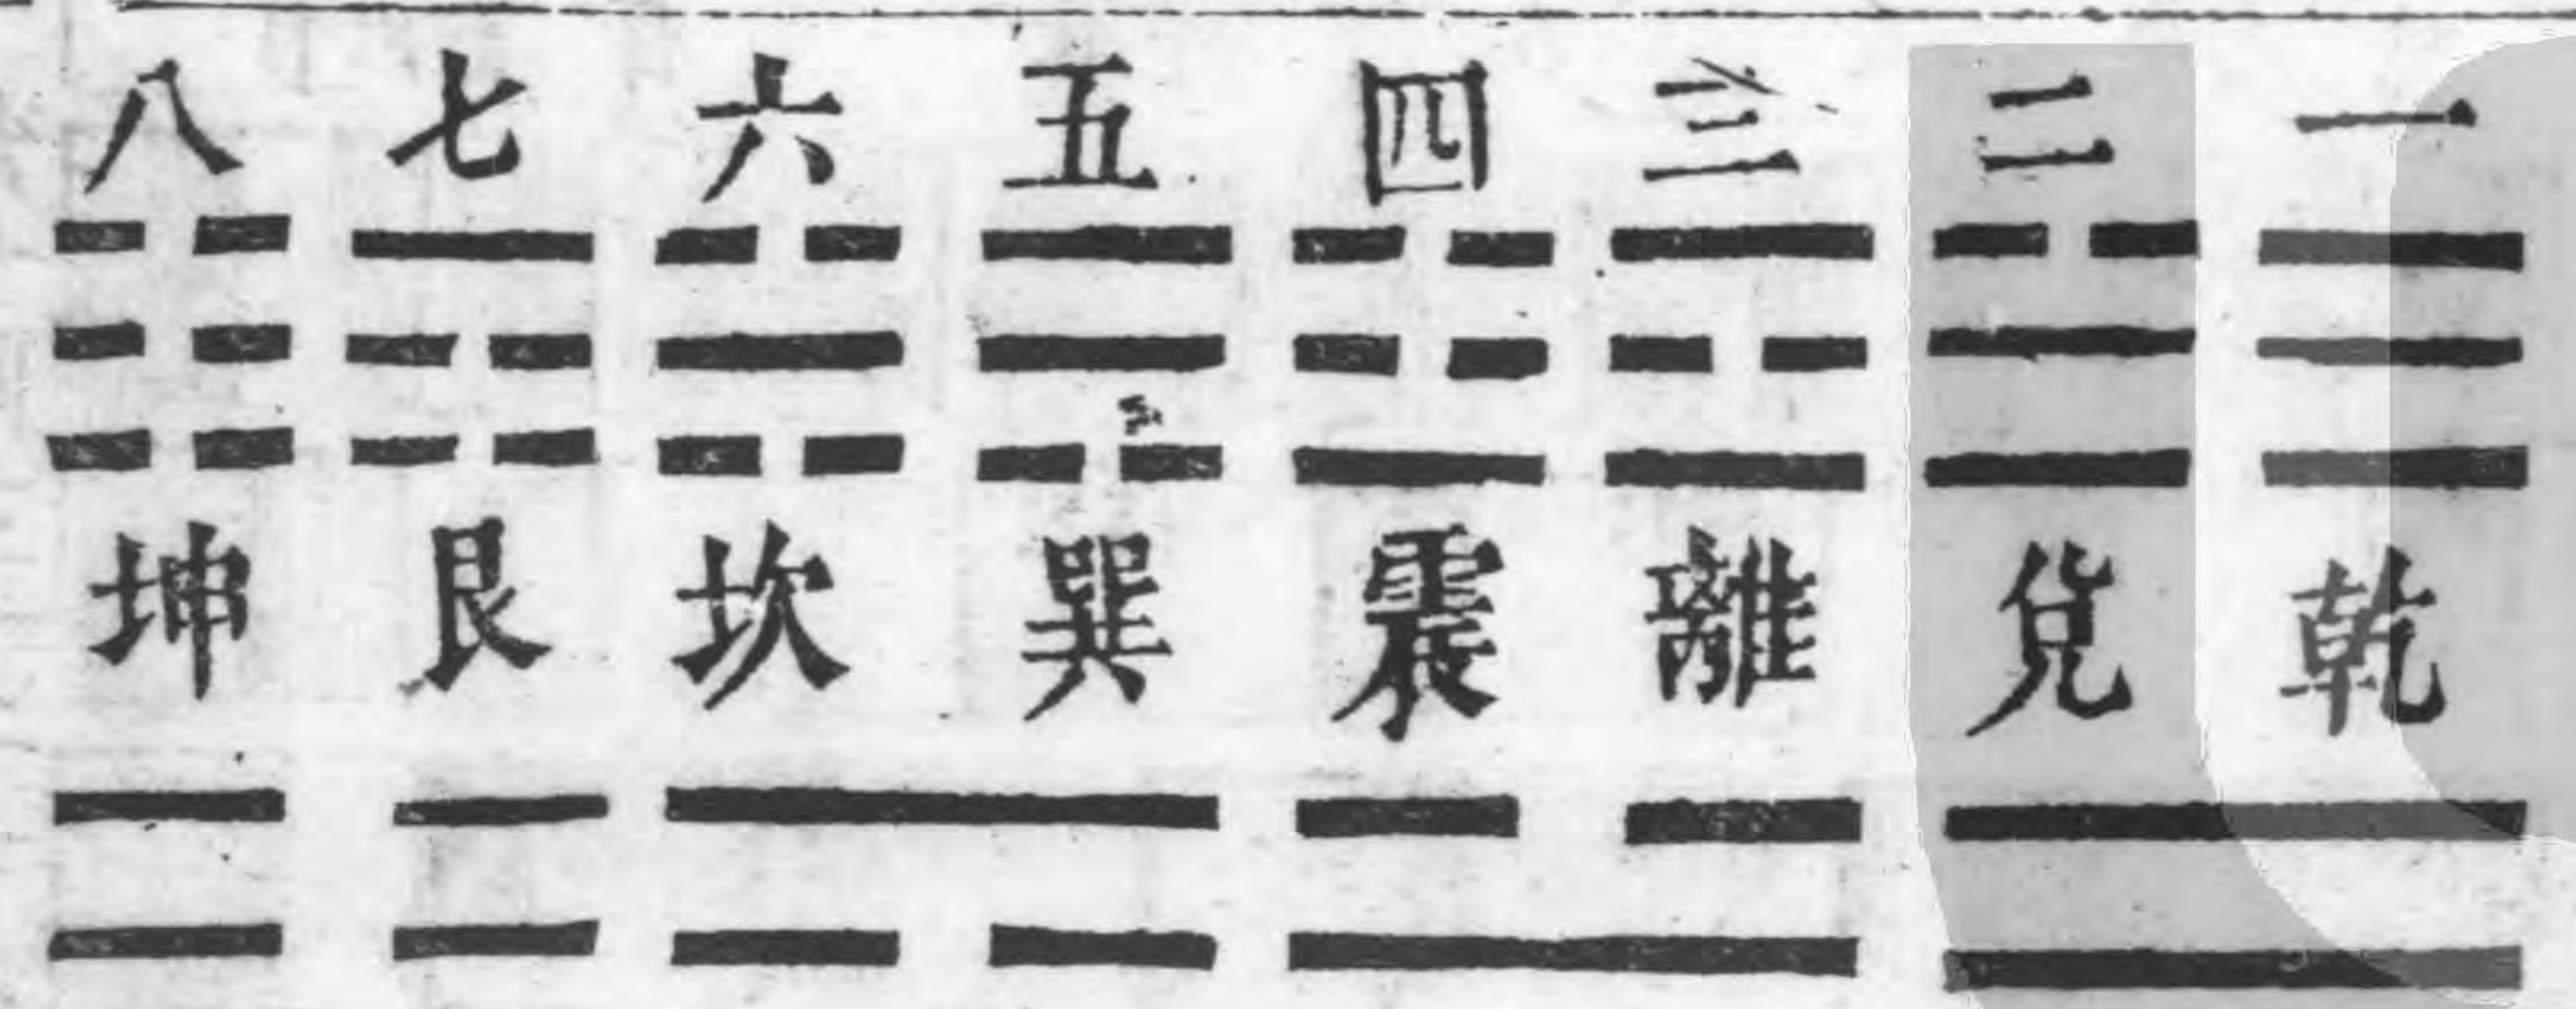 一 二 三 四 五 六 七 八
乾 兌 離 震 巽 坎 艮 坤